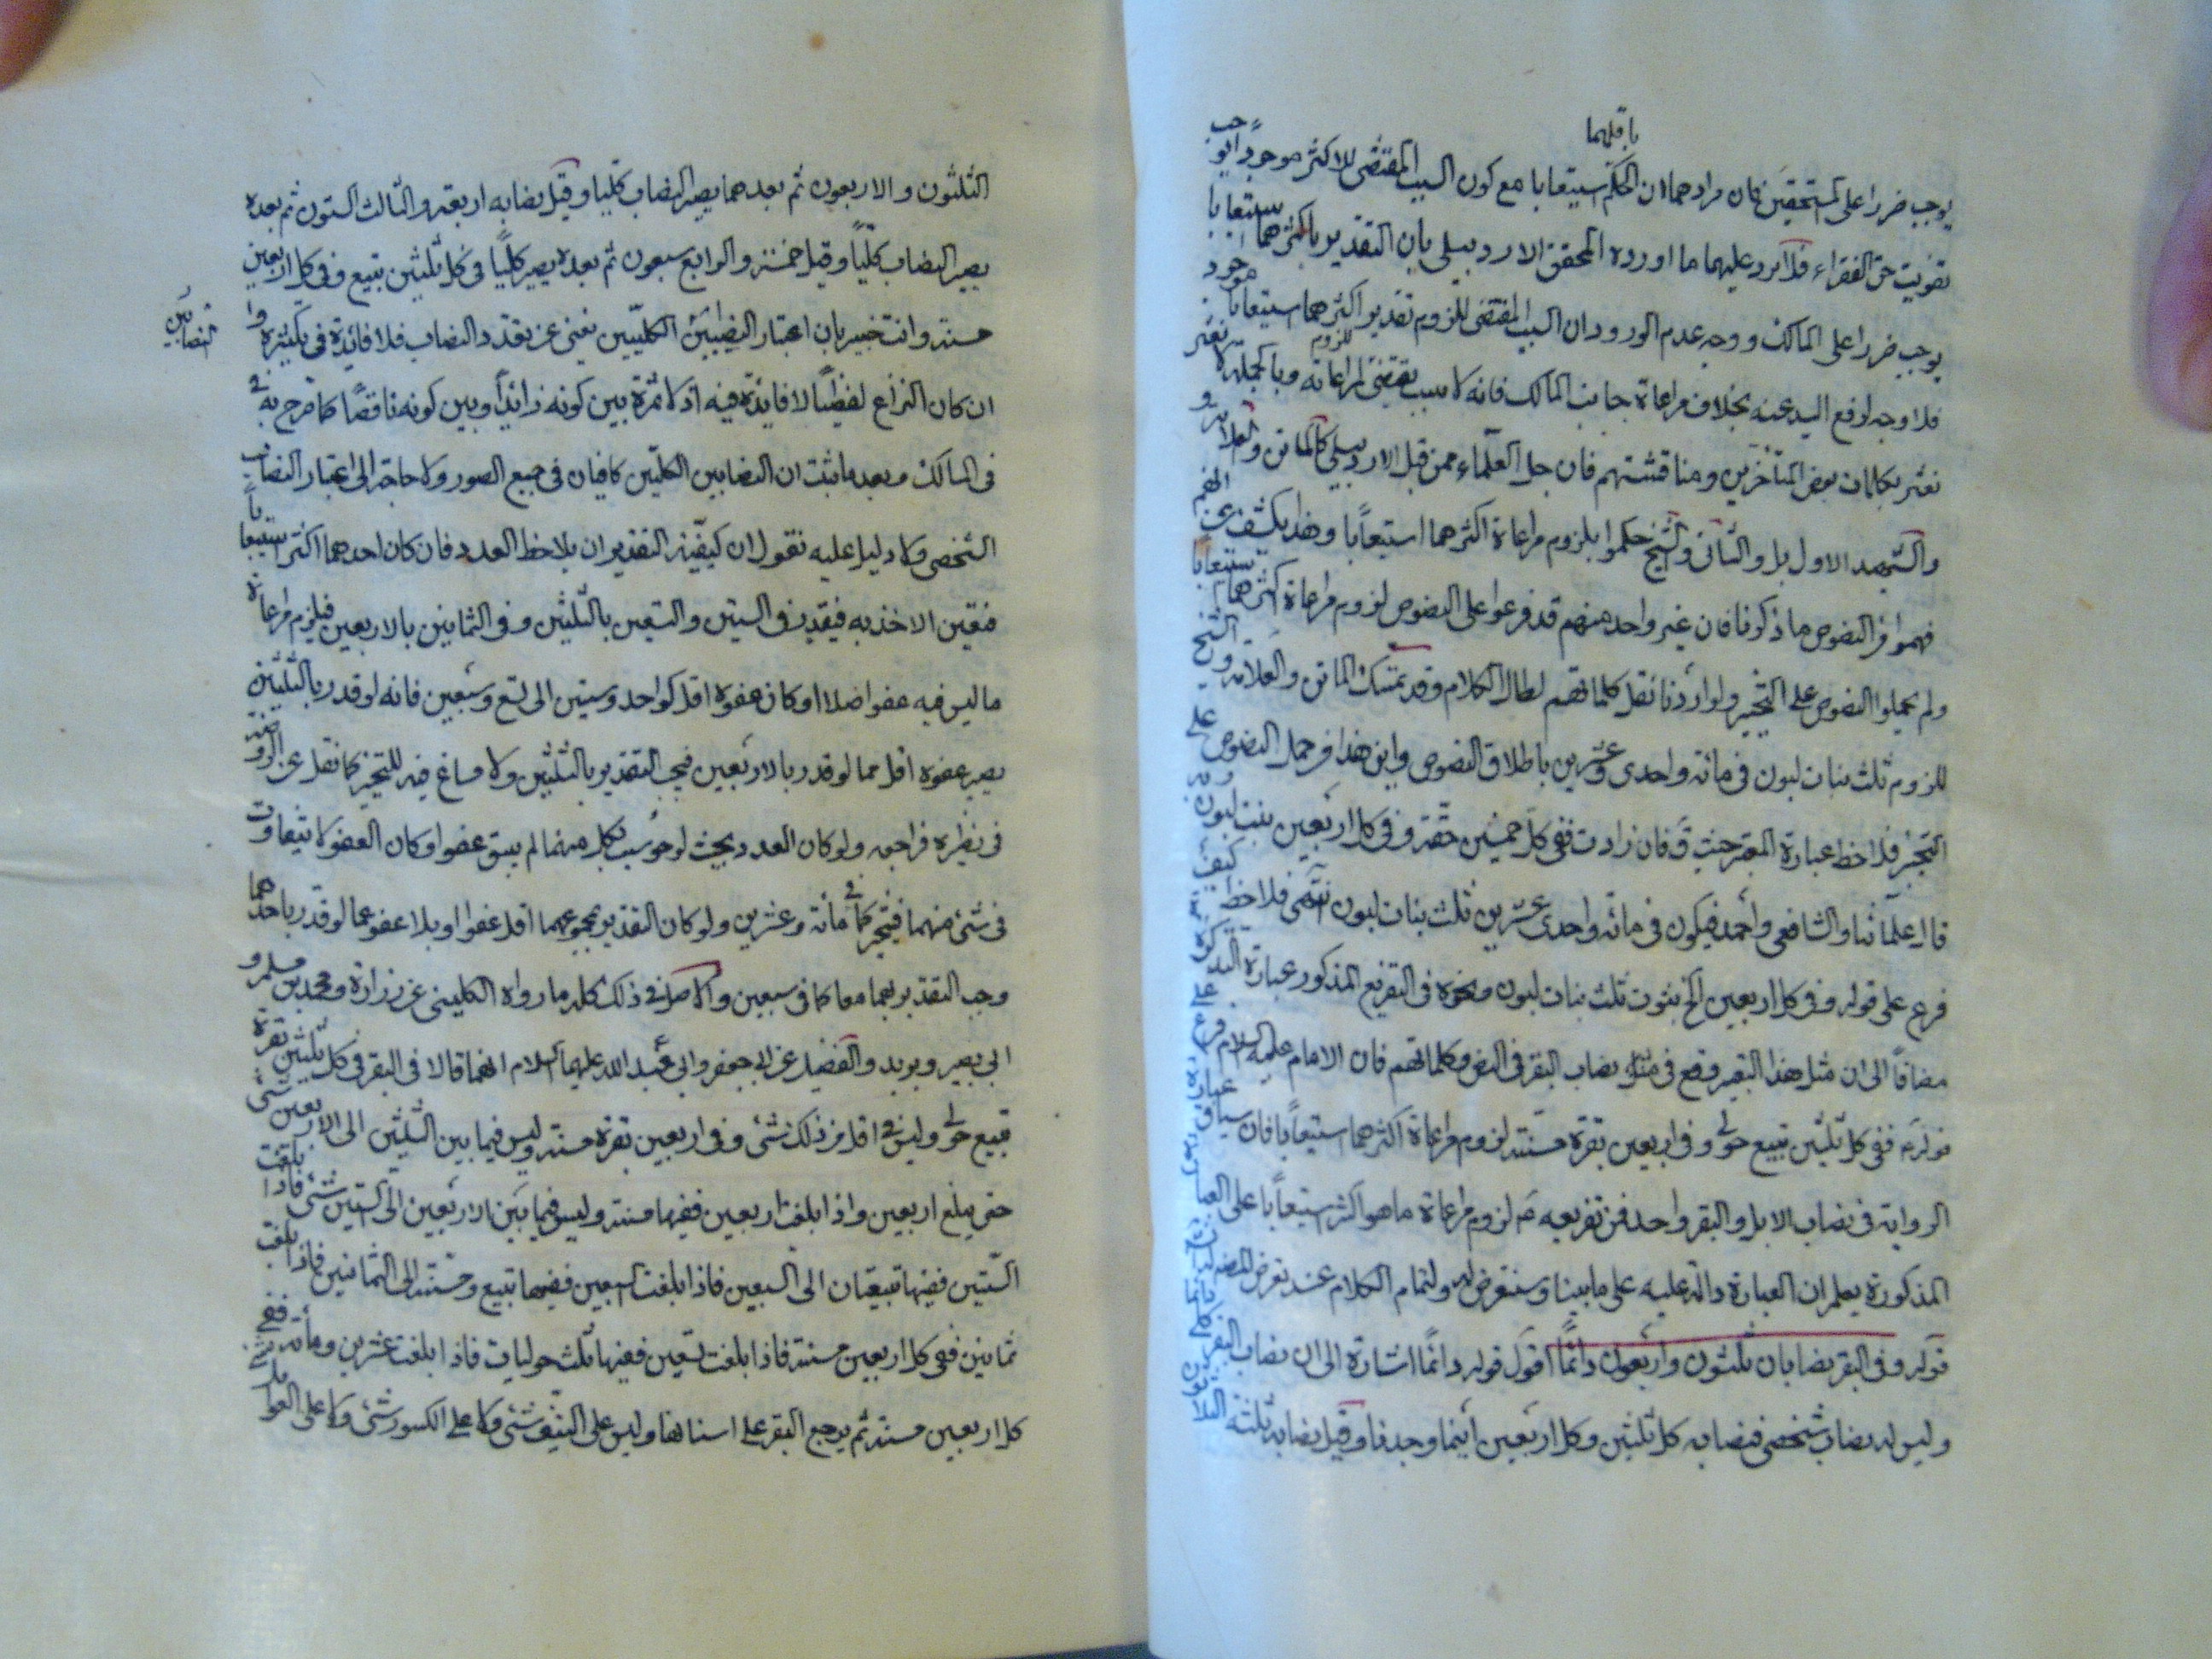 باقلهما
يوجب ضررا على المستحقين فان مرادهما ان الحكم استيعابا مع كون السبب المقتضى للاكثر موجودا يوجب
تفويت حق الفقراء فلا يرد عليهما ما اورده المحقق الاردبيلى بان التقدير باكثرهما استيعابا
يوجب ضررا على المالك ووجه عدم الورود ان السبب المقتضى للزوم تقدير اكثرهما استيعابا موجود
فلا وجه لرفع اليد عنه بخلاف مراعاة جانب المالك فانه لا سبب يقتضى لزوم مراعاته وبالجملة لا تغتر
بكلمات بعض المتاخرين ومناقشتهم فان جل العلماء ممن قبل الاردبيلى كالماتن والعلامة و
والشهيد الاول بل والثانى والشيخ حكموا بلزوم مراعاة اكثرهما استيعابا وهذا يكشف عن انهم
فهموا من النصوص ما ذكرنا فان غير واحد منهم قد فرعوا على النصوص لزوم مراعاة اكثرهما استيعابا
ولم يحملوا النصوص على التخيير ولو اردنا نقل كلماتهم لطال الكلام وقد تمسك الماتن والعلامة والشيخ
للزوم ثلث بنات لبون فى مائة واحدى وعشرين باطلاق النصوص واين هذا من حمل النصوص على
التخيير فلاحظ عبارة المعتبر حيث ق فان زادت ففى كل خمسين حقة وفى كل اربعين بنت لبون وبه
قال علمائنا والشافعى واحمد فيكون فى مائة واحدى عشرين ثلث بنات لبون انتهى فلاحظ كيف
فرع على قوله وفى كل اربعين الخ بثبوت ثلث بنات لبون ونحوه فى التفريع المذكور عبارة التذكرة
مضافا الى ان مثل هذا التعبير وقع فى مثل نصاب البقر فى النص وكلماتهم فان الامام عليه السلام فرع على
قوله ع ففى كل ثلثين تبيع حولى وفى اربعين بقرة مسنة لزوم مراعاة اكثرهما استيعابا فان سياق عبارة
الرواية فى نصاب الابل والبقر واحد فمن تفريعه ع لزوم مراعاة ما هو اكثر استيعابا على
المذكورة يعلم ان العبارة دالة عليه على ما بينا وسنتعرض له ولتمام الكلام عند تعرض
قوله وفى البقر نصابان ثلثون واربعون دائما اقول قوله دائما اشارة الى ان نصاب البقر
وليس له نصاب شخصى فنصابه كل ثلثين وكل اربعين اينما وجدفا وقيل نصابه ثلثة
الثلثون والاربعون ثم بعدهما يصير النصاب كليا وقيل نصابه اربعة والثالث الستون ثم بعده
يصير النصاب كليا وقيل خمسة والرابع سبعون ثم بعده يصير كليا فى كل ثلثين تبيع وفى كل اربعين
مسنة وانت خبير بان اعتبار النصابين الكليين يغنى عن تعدد النصاب فلا فائدة فى تكثيره وا
النصابين
ان كان النزاع لفظيا لا فايدة فيه اذ لا ثمرة بين كونه زائدا وبين كونه ناقصا كما صرح به فى
فى المسالك وبعد ما ثبت ان النصابين الكليين كافيان فى جميع الصور ولا حاجة الى اعتبار النصاب
الشخصى ولا دليل عليه نقول ان كيفية التقدير ان يلاحظ العدد فان كان احدهما اكثر استيعابا
فتعين الاخذ به فيقدر فى الستين والتسعين بالثلثين وفى الثمانين بالاربعين فيلزم مراعاة
ما ليس فيه عفو اصلا او كان عفوه اقل كواحد وستين الى تسع وستين فانه لو قدر بالثلثين
يصير عفوه اقل مما لو قدر بالاربعين فيجب التقدير بالثلثين ولا مساغ فيه للتخيير كما نقل عن الروضة
فى نظيره فراجعه ولو كان العدد بحيث لو حوسب بكل منهما لم يبق عفو او كان العفو لا يتفاوت
فى شئ منهما فيتخير كما فى مائة وعشرين ولو كان التقدير بمجموعهما اقل عفوا او بلا عفو عما لو قدر باحدهما
وجب التقدير بهما معا كما فى سبعين والاصل فى ذلك كله ما رواه الكلينى عن زرارة ومحمد بن مسلم و
ابى بصير وبريد والفضيل عن ابى جعفر وابى عبد الله عليهما السلام انهما قالا فى البقر فى كل ثلثين بقرة
تبيع حولى وليس فى اقل من ذلك شئ وفى اربعين بقرة مسنة وليس فيما بين الثلثين الى الاربعين شئ
حتى يبلغ اربعين واذا بلغت اربعين ففيها مسنة وليس فيما بين الاربعين الى الستين شئ فاذا بلغت
الستين ففيها تبيعان الى السبعين فاذا بلغت السبعين ففيها تبيع ومسنة الى الثمانين فاذا بلغت
ثمانين ففى كل اربعين مسنة فاذا بلغت تسعين ففيها ثلث حوليات فاذا بلغت عشرين ومائة ففى
كل اربعين مسنة ثم يرجع البقر على اسنانها وليس على النيف شئ ولا على الكسور شئ ولا على العوامل شئ